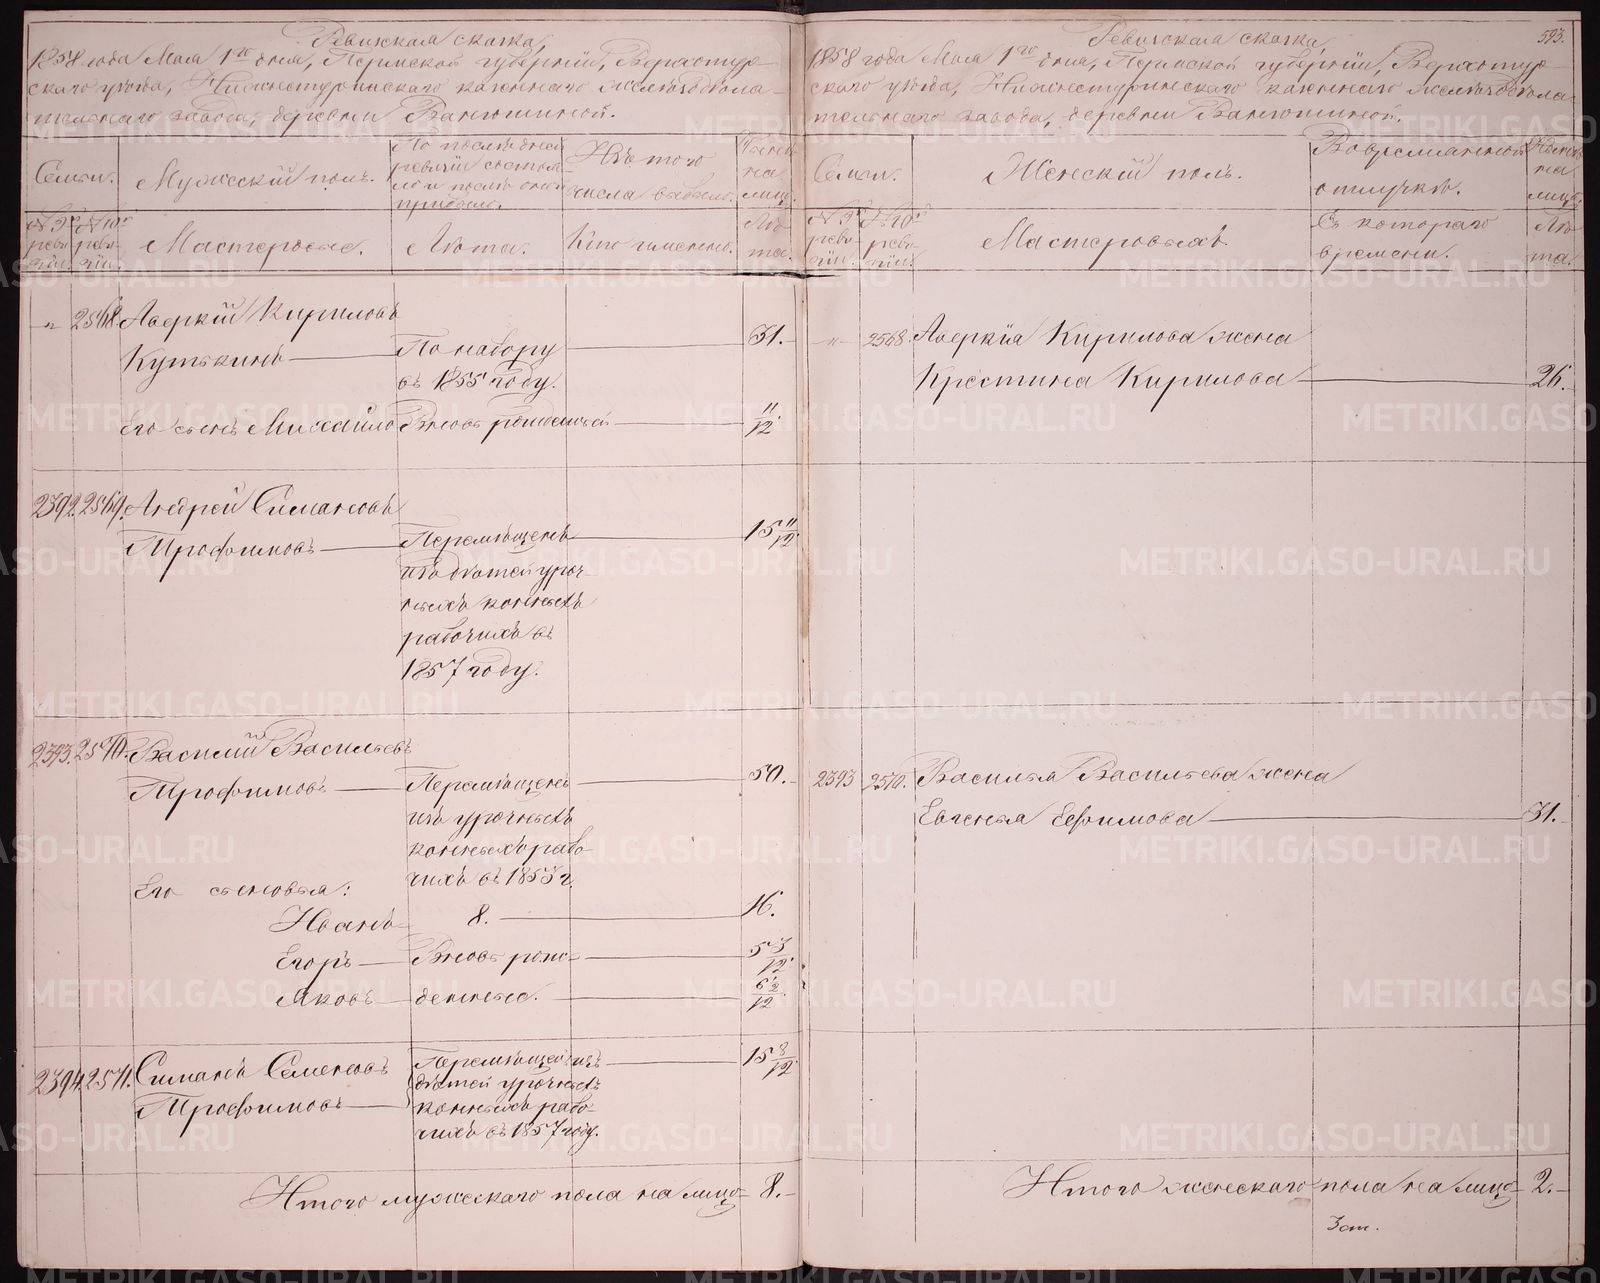 Ревизская сказка,
1858 года Мая 1го дня, Пермской губерніи, Верхотур-
скаго уѣзда, Нижнетуринскаго казеннаго желѣзодѣла-
тельнаго завода, деревни Ванюшиной.
Семьи.
Мужескій полъ.
По послѣдней
ревизіи состоя-
ло и послѣ оной
прибыло.
Изъ того
числа выбыло.
Нынѣ
на
лицо.
№ 9й
реви-
зіи.
№ 10й
реви-
зіи.
Мастеровые.
Лѣта.
Кто именно.
Лѣ-
та.
"
2568.
Аверкій Кириловъ
Кутькинъ
По набору
въ 1855 году.
31.
Его сынъ Михайло
Вновь рожденный
11/12.
2392.
2569.
Андрей Симановъ
Трофимовъ
Перемѣщенъ
изъ дѣтей уроч-
ныхъ конныхъ
рабочихъ въ
1857 году.
15 11/12.
2393.
2570.
Василій Васильевъ
Трофимовъ
Перемѣщенъ
изъ урочныхъ
конныхъ рабо-
чихъ въ 1853 г.
50.
Его сыновья:
Иванъ
8.
16.
Егоръ
Вновь рож-
5 3/12.
Яковъ
денные.
6 2/12.
2394.
2571.
Симанъ Семеновъ
Трофимовъ
Перемѣщенъ изъ
дѣтей урочныхъ
конныхъ рабо-
чихъ въ 1857 году.
15 8/12.
Итого мужескаго пола на лицо
8.
593.
Ревизская сказка,
1858 года Мая 1го дня, Пермской губерніи, Верхотур-
скаго уѣзда, Нижнетуринскаго казеннаго желѣзодѣла-
тельнаго завода, деревни Ванюшиной.
Семьи.
Женскій полъ.
Во временной
отлучкѣ.
Нынѣ
на
лицо.
№ 9й
реви-
зіи.
№ 10й
реви-
зіи.
Мастеровыхъ.
Съ котораго
времени.
Лѣ-
та.
"
2568.
Аверкія Кирилова жена
Крестина Кирилова
26.
2393
2570.
Василья Васильева жена
Евгенья Ефимова
31.
Итого женскаго пола на лицо
2.
METRIKI.GASO-URAL.RU